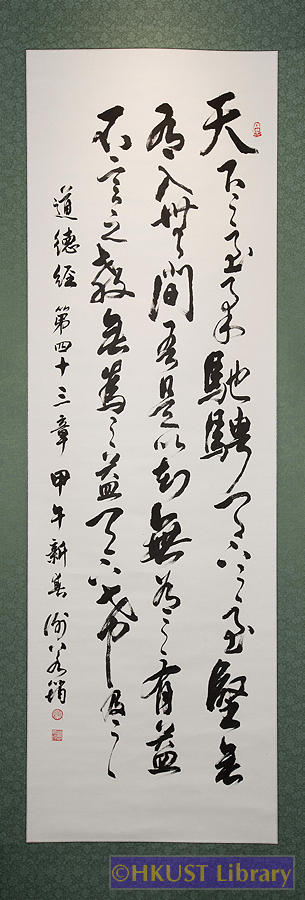 天下之至柔馳騁天下之至堅無
有入無間吾是以知無為之有益
不言之教無為之益天下希及之
道德經 第四十三章 甲午新春
©HKUST Library